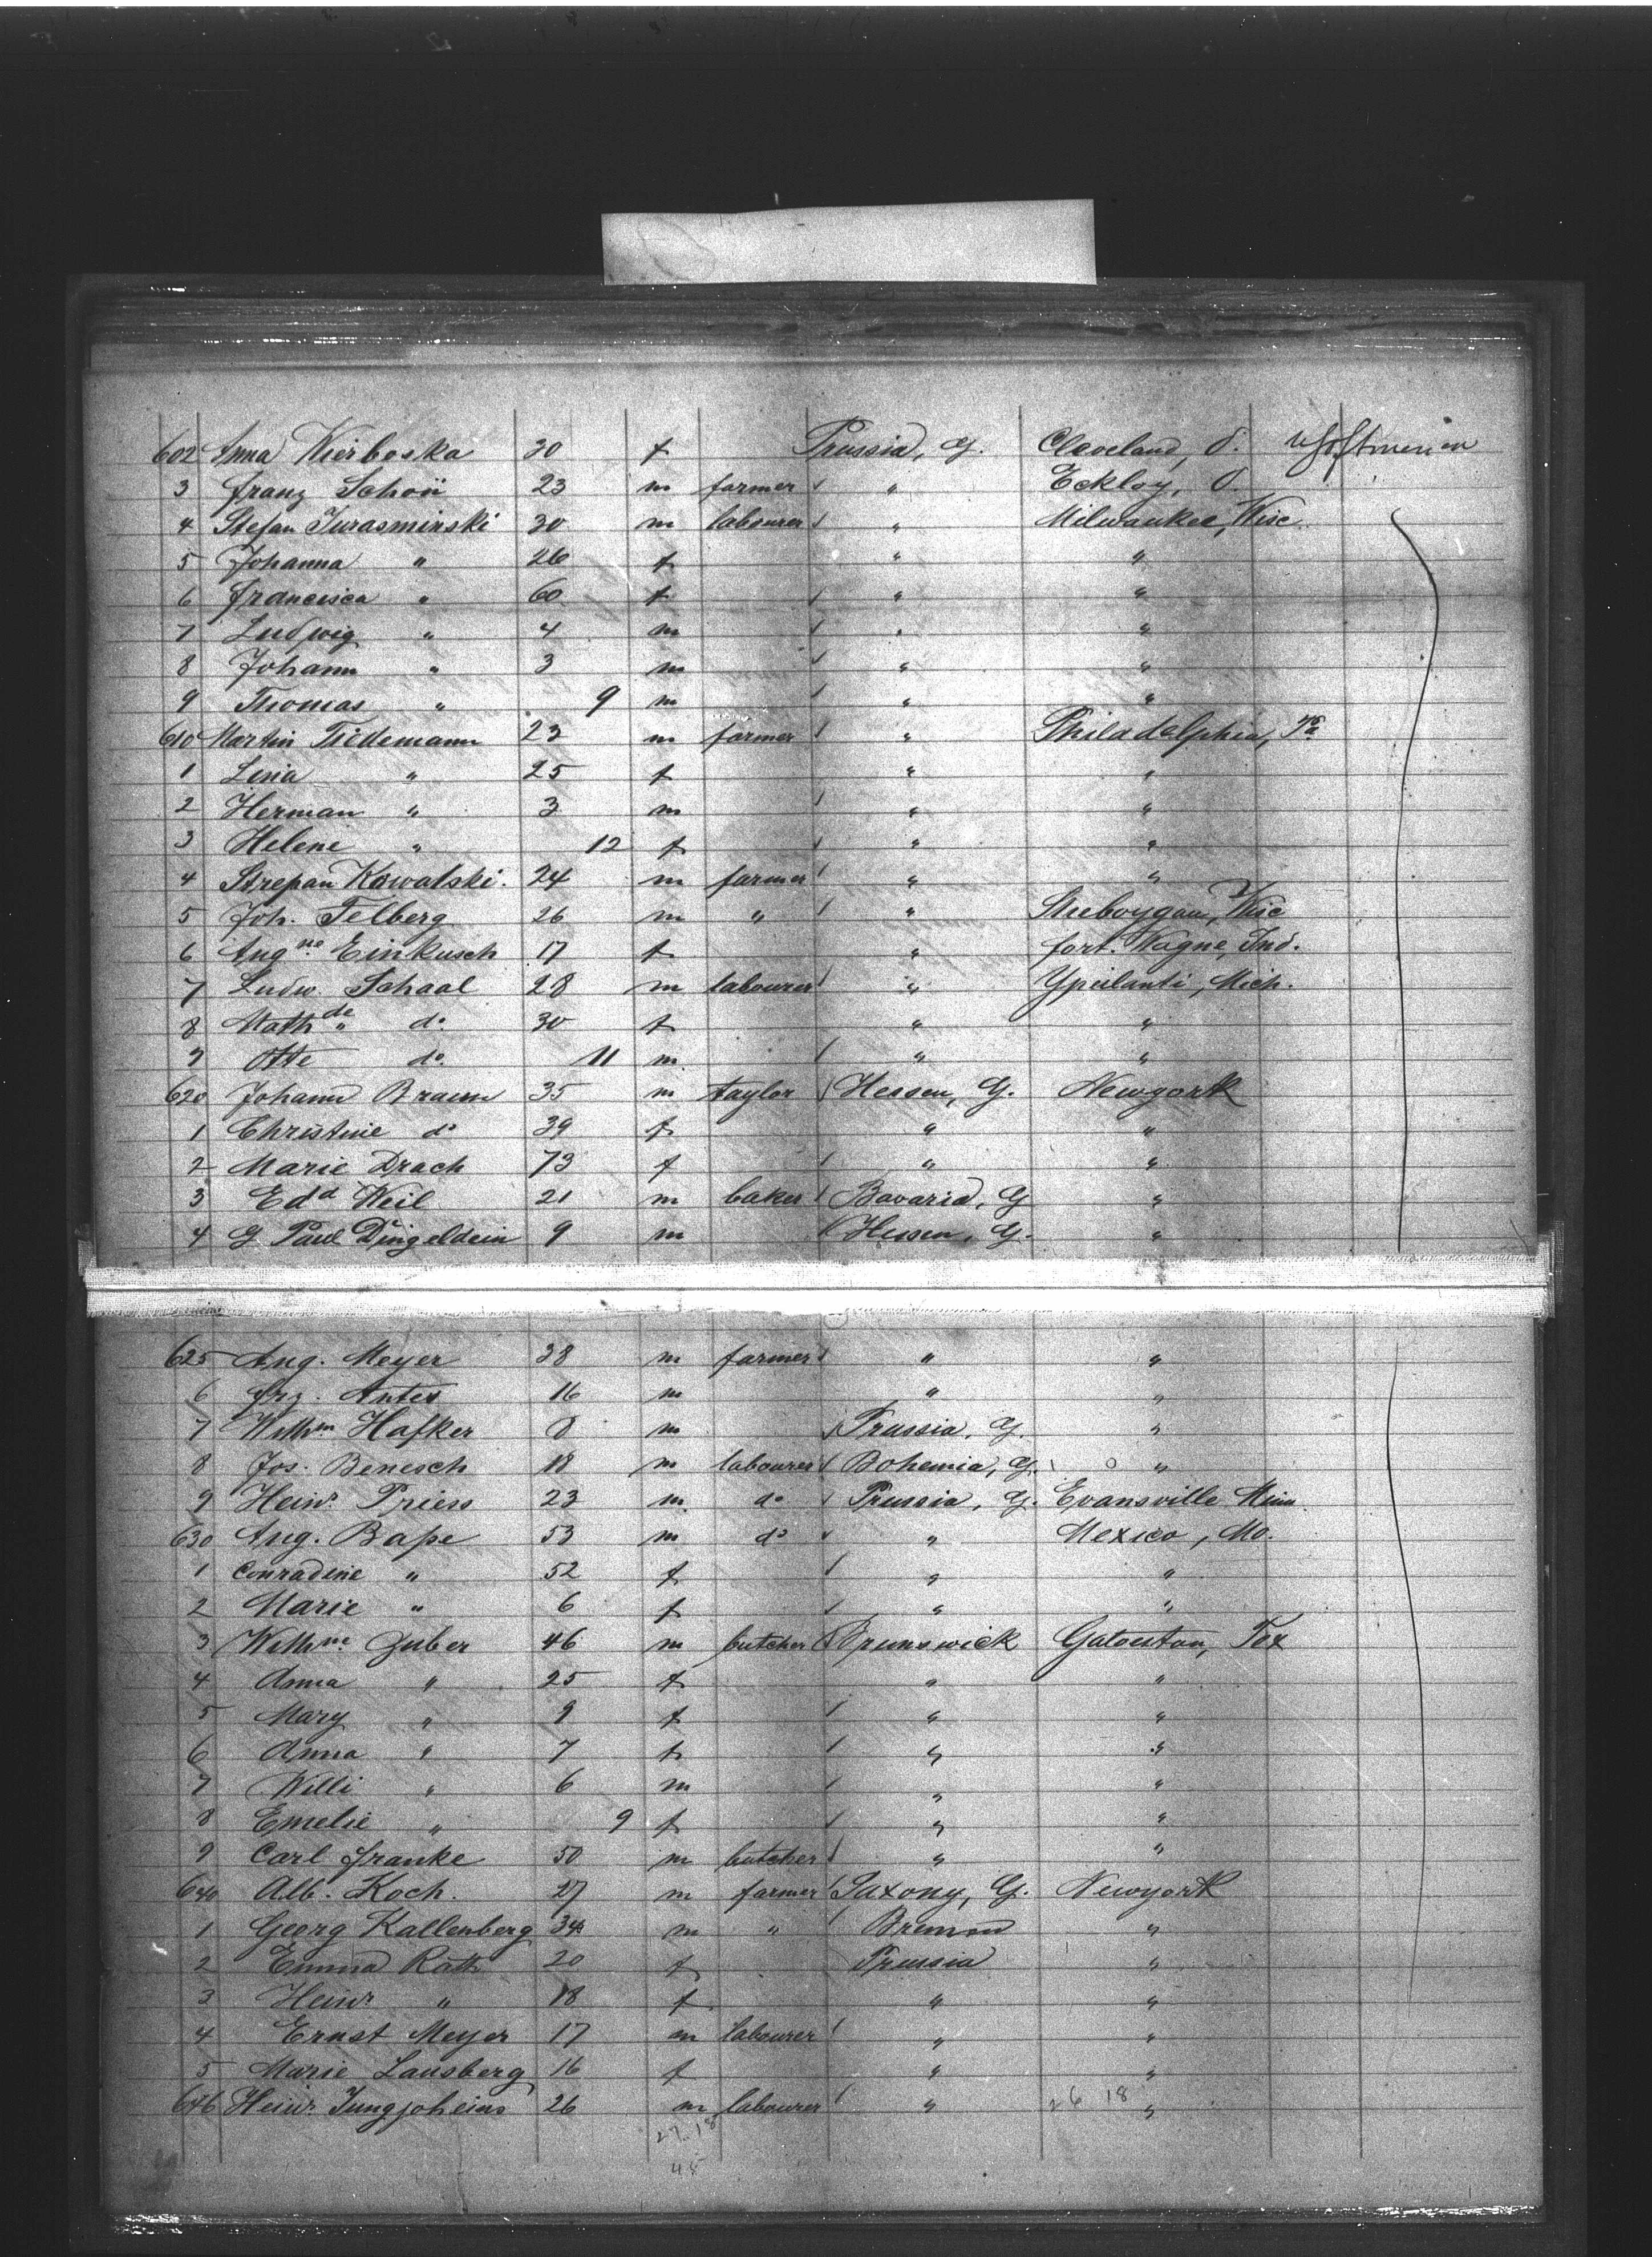 602 Anna Wierboska 20 f Prussia, G. Cleveland, O.
3 Franz Schön 23 m farmer " Eckloy, O.
4 Stefan Jurasminski 30 m labourer " Milwaukee, Wisc.
5 Johanna " 26 f " "
6 Francisca " 60 f " "
7 Ludwig " 4 m " "
8 Johann " 3 m " "
9 Thomas " 9 m " "
610 Martin Tiedemann 23 m farmer " Philadelphia, Pa
1 Lina " 25 f " "
2 Herman " 3 m " "
3 Helene " 12 f " "
4 Strepan Kowalski. 24 m farmer " "
5 Joh. Felberg 26 m " " Sheboygan, Wisc
6 Augne Einkusch 17 f " fort. Wagne, Ind.
7 Ludw. Schaal 28 m labourer " Ypsilanti, Mich.
8 Mathde " do 30 f " "
9 Otto do. 11 m " "
620 Johann Braun 35 m taylor Hessen, G. Newyork
1 Christine do 39 f " "
2 Marie Drach 73 f " "
3 Edd Weil 21 m baker Bavaria, G "
4 G Paul Dingeldein 9 m Hessen, G. "
625 Aug. Meyer 38 m farmer " "
6 Frz. Antes 16 m " "
7 Wilhm Hafker 8 m Prussia, G. "
8 Jos. Benesch 18 m labourer Bohemia, G. "
9 Heinr. Priess 23 m. do Prussia, G. Evansville Minn.
630 Aug. Bape 53 m do " Mexico, Mo.
1 Conradine " 52 f " "
2 Marie " 6 f " "
3 Wilhme Guber 46 m butcher Brunswick Galveston, Tex
4 Anna " 25 f " "
5 Mary " 9 f " "
6 Anna " 7 f " "
7 Willi " 6 m " "
8 Emelie " 9 f " "
9 Carl Franke 50 m butcher " "
640 Alb. Koch. 27 m farmer Saxony, G. Newyork
1 Georg Kallenberg 34 m " Bremen "
2 Emma Rath 20 f Prussia "
3 Heinr " 18 f " "
4 Ernst Meyer 17 m labourer " "
5 Marie Lausberg 16 f " "
646 Heinr. Jungjoheins 26 m labourer " 26 18 "
27 18
45